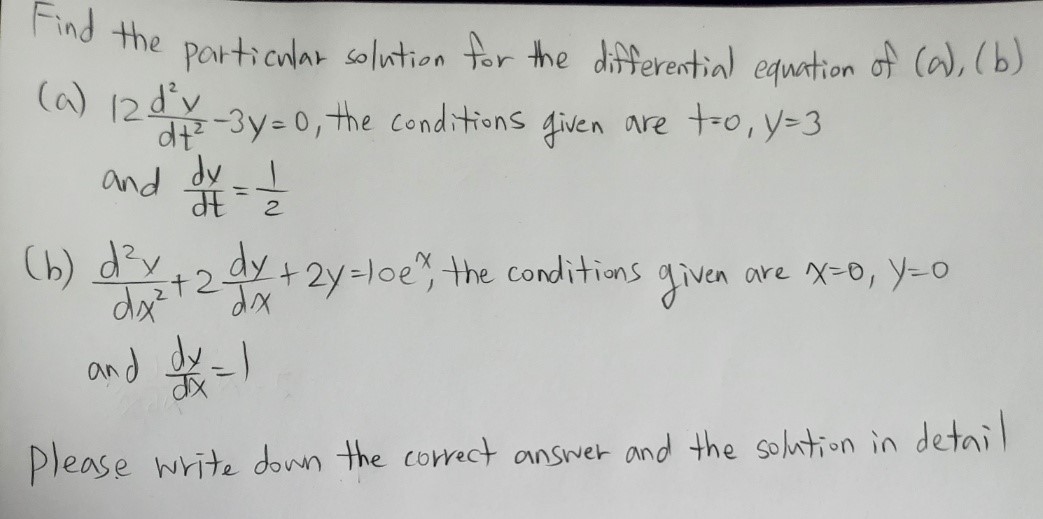 Find the particular solution for the differential equation of (a), (b)
(a) 12 d²y/dt² -3y=0, the conditions given are t=0, y=3
and dy/dt = 1/2
(b) d²y/dx² +2 dy/dx + 2y=10eˣ, the conditions given are x=0, y=0
and dy/dx = 1
Please write down the correct answer and the solution in detail